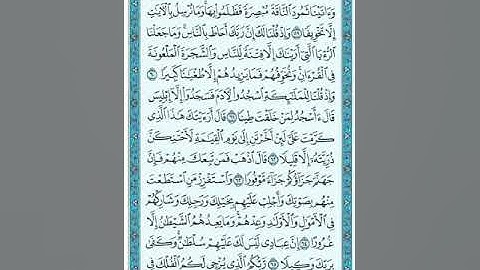 وَءَاتَيْنَا ثَمُودَ اَلنَّاقَةَ مُبْصِرَةً فَظَلَمُواْ بِهَا وَمَا نُرْسِلُ بِالْأَيَٰتِ
إِلَّا تَخْوِيفًا وَإِذْ قُلْنَا لَكَ إِنَّ رَبَّكَ أَحَاطَ بِالنَّاسِ وَمَا جَعَلْنَا
اَلرُّءْيَا اَلَّتِے أَرَيْنَٰكَ إِلَّا فِتْنَةً لِّلنَّاسِ وَالشَّجَرَةَ اَلْمَلْعُونَةَ
فِے اِلْقُرْءَانِ وَنُخَوِّفُهُمْ فَمَا يَزِيدُهُمْ إِلَّا طُغْيَٰنًا كَبِيرًا
وَإِذْ قُلْنَا لِلْمَلَٰٓئِكَةِ اِسْجُدُواْ لِأَدَمَ فَسَجَدُوٓاْ إِلَّآ إِبْلِيسَ
قَالَ ءَآسْجُدُ لِمَنْ خَلَقْتَ طِينًا قَالَ أَرَٰٓيْتَكَ هَٰذَا اَلَّذِے
كَرَّمْتَ عَلَيَّ لَئِنْ أَخَّرْتَنِۦٓ إِلَىٰ يَوْمِ اِلْقِيَٰمَةِ لَأَحْتَنِكَنَّ
ذُرِّيَّتَهُۥٓ إِلَّا قَلِيلًا قَالَ اَذْهَبْ فَمَن تَبِعَكَ مِنْهُمْ فَإِنَّ
جَهَنَّمَ جَزَآؤُكُمْ جَزَآءً مَّوْفُورًا وَاسْتَفْزِزْ مَنِ اِسْتَطَعْتَ
مِنْهُم بِصَوْتِكَ وَأَجْلِبْ عَلَيْهِم بِخَيْلِكَ وَرَجْلِكَ وَشَارِكْهُمْ
فِے اِلْأَمْوَٰلِ وَالْأَوْلَٰدِ وَعِدْهُمْ وَمَا يَعِدُهُمُ اُلشَّيْطَٰنُ إِلَّا
غُرُورًا إِنَّ عِبَادِے لَيْسَ لَكَ عَلَيْهِمْ سُلْطَٰنٌ وَكَفَىٰ
بِرَبِّكَ وَكِيلًا رَّبُّكُمُ اُلَّذِے يُزْجِے لَكُمُ اُلْفُلْكَ فِے